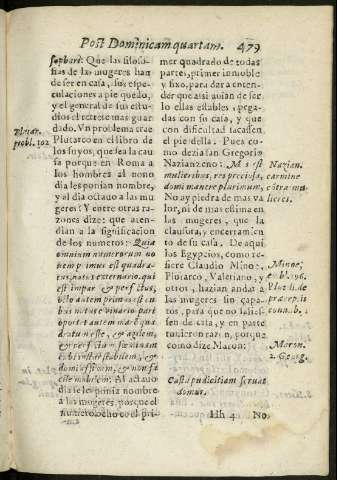 Post Dominicam quartam. 479
sophare. Que las filoso-
fias de las mugeres han
de ser en casa, sus espe-
culaciones a pie quedo,
y el general de sus estu-
dios el retrete mas guar-
dado. Vn problema trae
Plutarco en el libro de
los suyos, que sea la cau
sa porque en Roma a
los hombres al nono
dia les ponian nombre,
y al dia octauo a las mu
geres? Y entre otras ra-
zones dize: que aten-
dian a la significacion
de los numeros: Quia
omnium numerorum no
impar et perfectus,
octo autem primus est cu
oportet autem
dratum esse, &
domi esse
esse mulierem: Al octauo
dia se le ponia nombre
a las mugeres, porque el
numero ocho es el pri-
Plutar.
probl. 102
mer quadrado de todas
partes, primer inmoble
y fixo, para dar a enten-
der que assi auian de ser
lo ellas estables, pega-
das con su casa, y que
con dificultad sacassen
el pie della. Pues co-
mo dezia san Gregorio
Nazianzeno: est
mulieribus, res preciosa,
domi manere plurimum,
No ay piedra de mas va
lor, ni de mas estima en
las mugeres, que la
clausura, y encerramien
to de su casa. De aqui
los Egypcios, como re-
fiere Claudio Minoe,
Plutarco, Valeriano, y
otros, hazian andar a
las mugeres sin çapa-
tos, para que no salies-
sen de ella, y en parte
tuuieron razon, porque
como dize Maron:
Casta pudicitiam seruat
domus.
Nazian.
carmine
contra mu
lieres.
Minoe,
embl. 196.
Plut. li. de
præcep. is
connub.
Maron.
2. Georg.
Hh 4 No